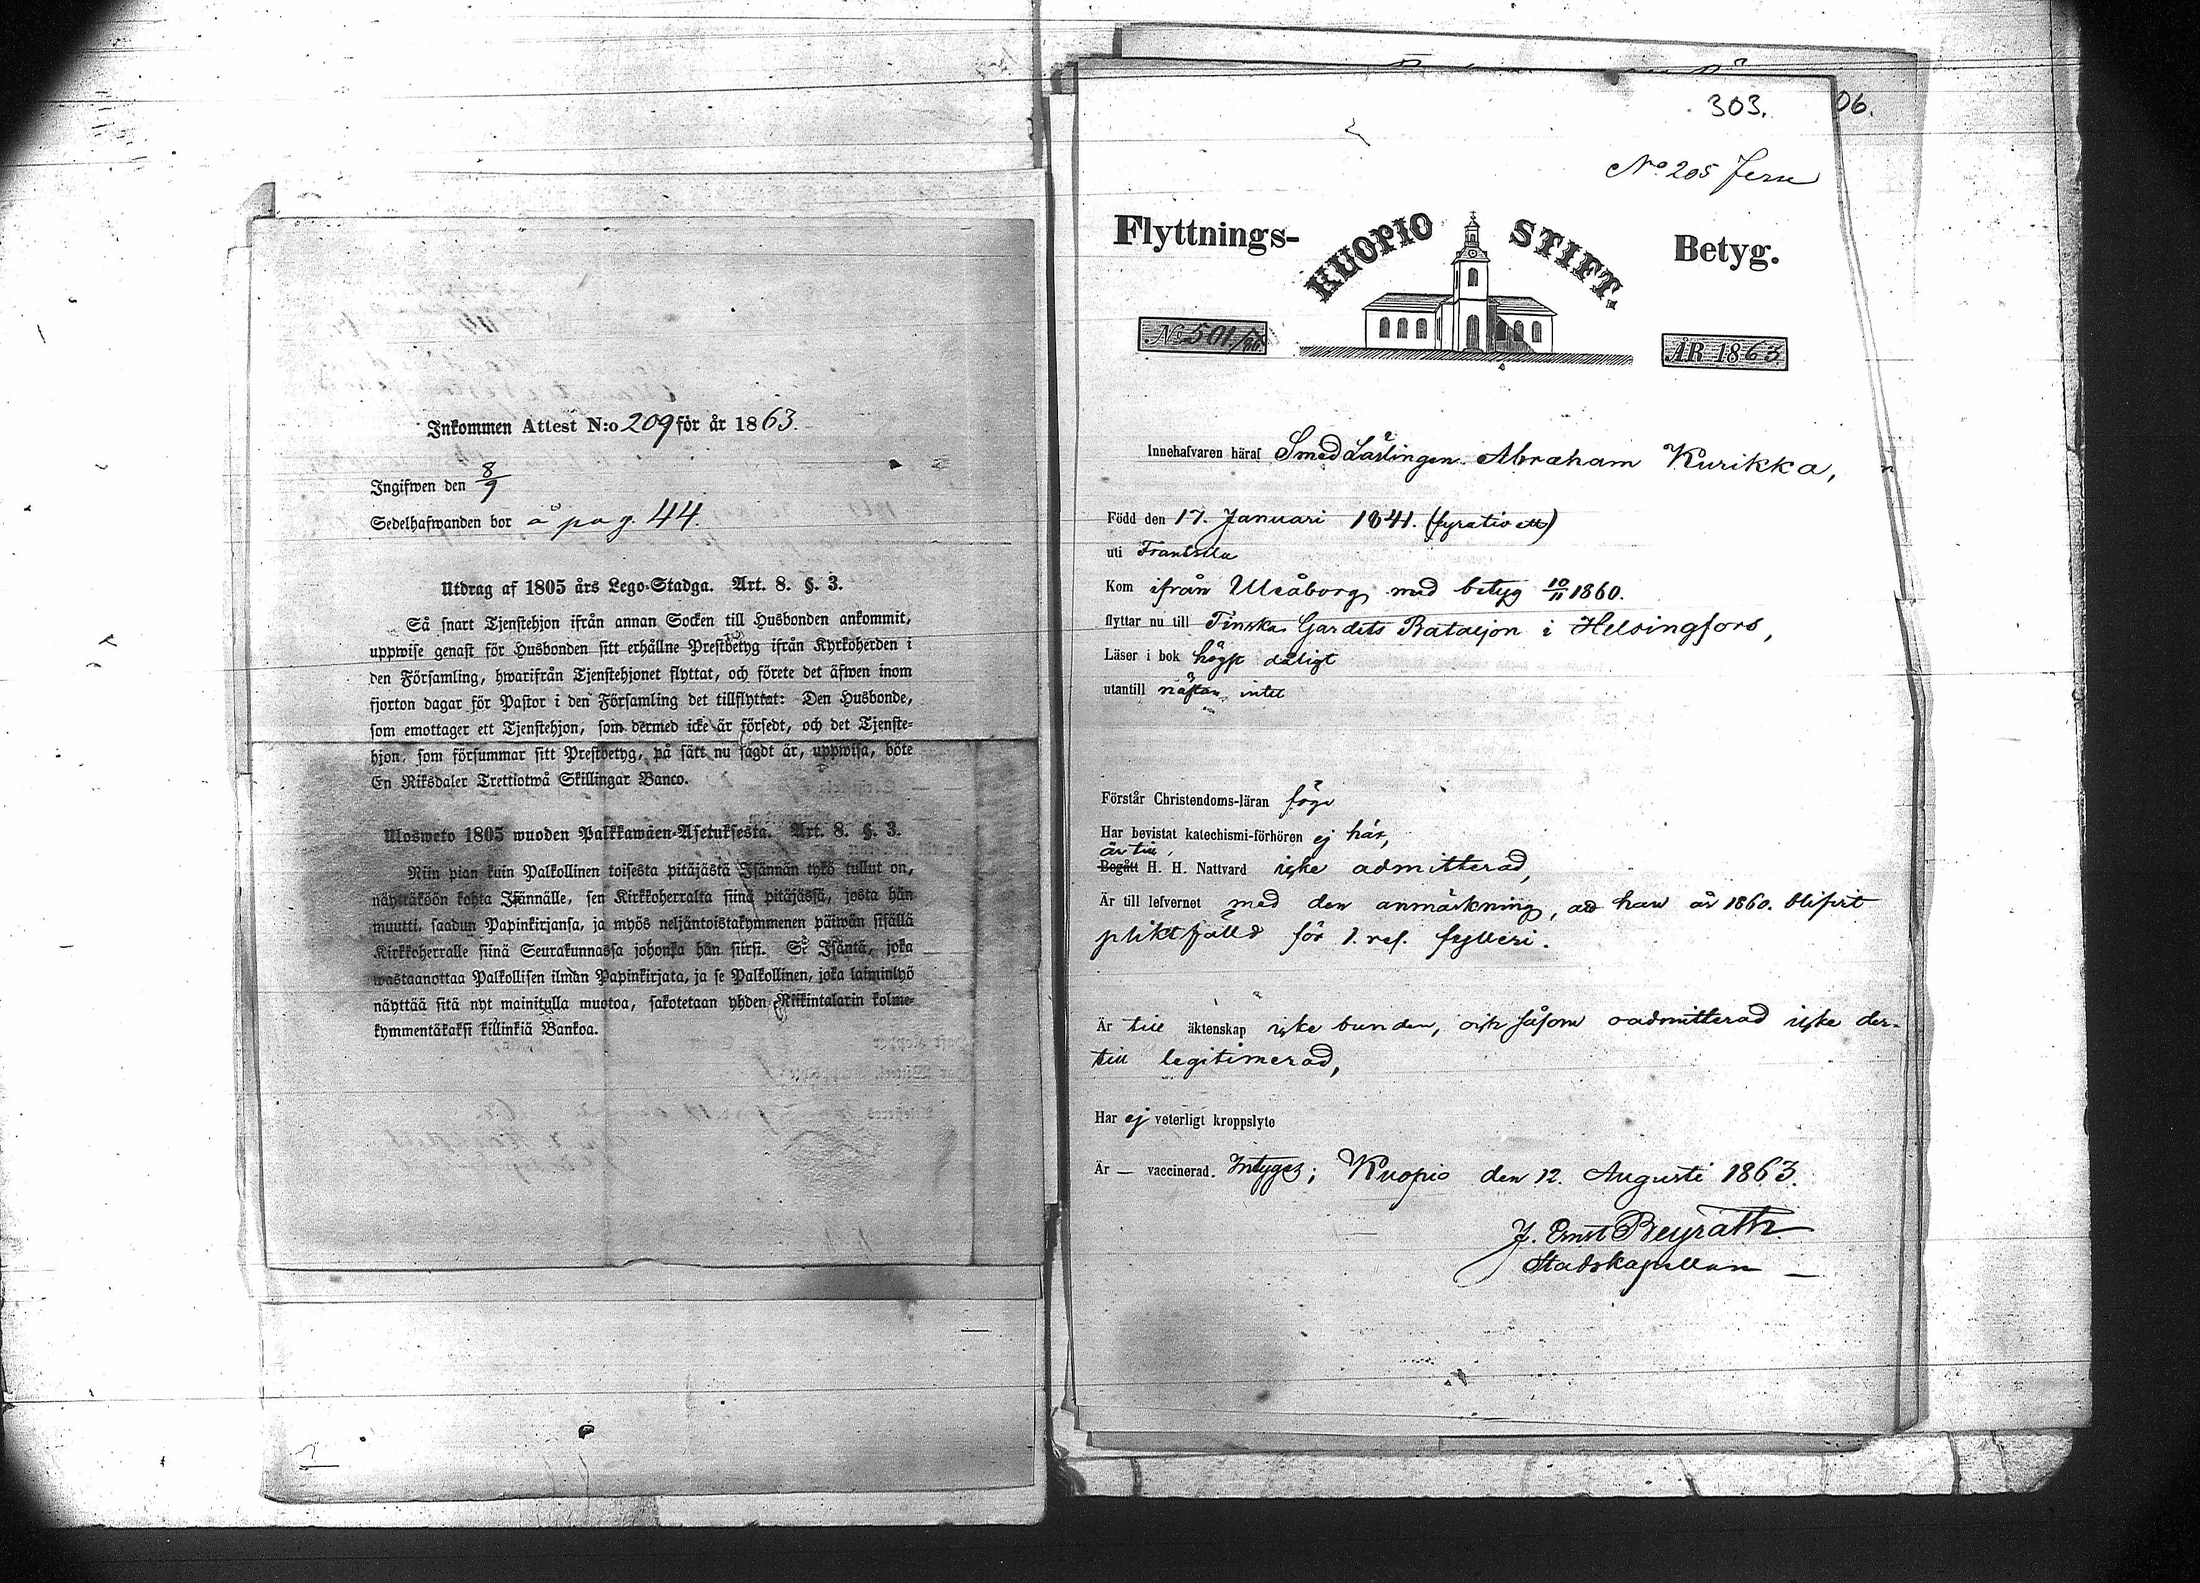 Inkommen Attest N:o 209 för år 1863.
Ingifwen den 8/9
Sedelhafwanden bor å pag. 44.
Utdrag af 1805 års Lego-Stadga. Art. 8. §. 3.
Så snart Tjenstehjon ifrån annan Socken till Husbonden ankommit,
uppwise genast för Husbonden sitt erhållne Prestbetyg ifrån Kyrkoherden i
den Församling, hwarifrån Tjenstehjonet flyttat, och förete det äfwen inom
fjorton dagar för Pastor i den Församling det tillflyttat: Den Husbonde,
som emottager ett Tjenstehjon, som dermed icke är försedt, och det Tjenste-
hjon, som försummar sitt Prestbetyg, på sätt nu sagdt är, uppwisa, böte
En Riksdaler Trettiotwå Skillingar Banco.
Ulosweto 1805 wuoden Palkkawäen-Asetuksesta. Art. 8. §. 3.
Niin pian kuin Palkollinen toisesta pitäjästä Isännän tykö tullut on,
näyttäköön kohta Isännälle, sen Kirkkoherralta siinä pitäjässä, josta hän
muutti, saadun Papinkirjansa, ja myös neljäntoistakymmenen päiwän sisällä
Kirkkoherralle siinä Seurakunnassa johonka hän siirsi. Se Isäntä, joka
wastaanottaa Palkollisen ilman Papinkirjata, ja se Palkollinen, joka laiminlyö
näyttää sitä nyt mainitulla muotoa, sakotetaan yhden Riikintalarin kolme-
kymmentäkaksi killinkiä Bankoa.
06.
303.
No 205
Flyttnings- KUOPIO STIFT Betyg.
No 501/60.
ÅR 1863
Innehafvaren häraf Smed Lärlingen Abraham Kurikka,
Född den 17. Januari 1841. (fyratio ett)
uti Frantsila
Kom ifrån Uleåborg med betyg 10/11 1860.
flyttar nu till Finska Gardets Bataljon i Helsingfors,
Läser i bok högst dåligt
utantill nästan intet
Förstår Christendoms-läran föga
Har bevistat katechismi-förhören ej här,
är till
Begått H. H. Nattvard icke admitterad,
Är till lefvernet med den anmärkning, att han år 1860. blifvit
pliktfälld för 1. res. fylleri.
Är till äktenskap icke bunden, och såsom oadmitterad icke der-
till legitimerad,
Har ej veterligt kroppslyte
Är — vaccinerad. Intygas; Kuopio den 12. Augusti 1863.
J. Ernst Beyrath.
Stadskapellan